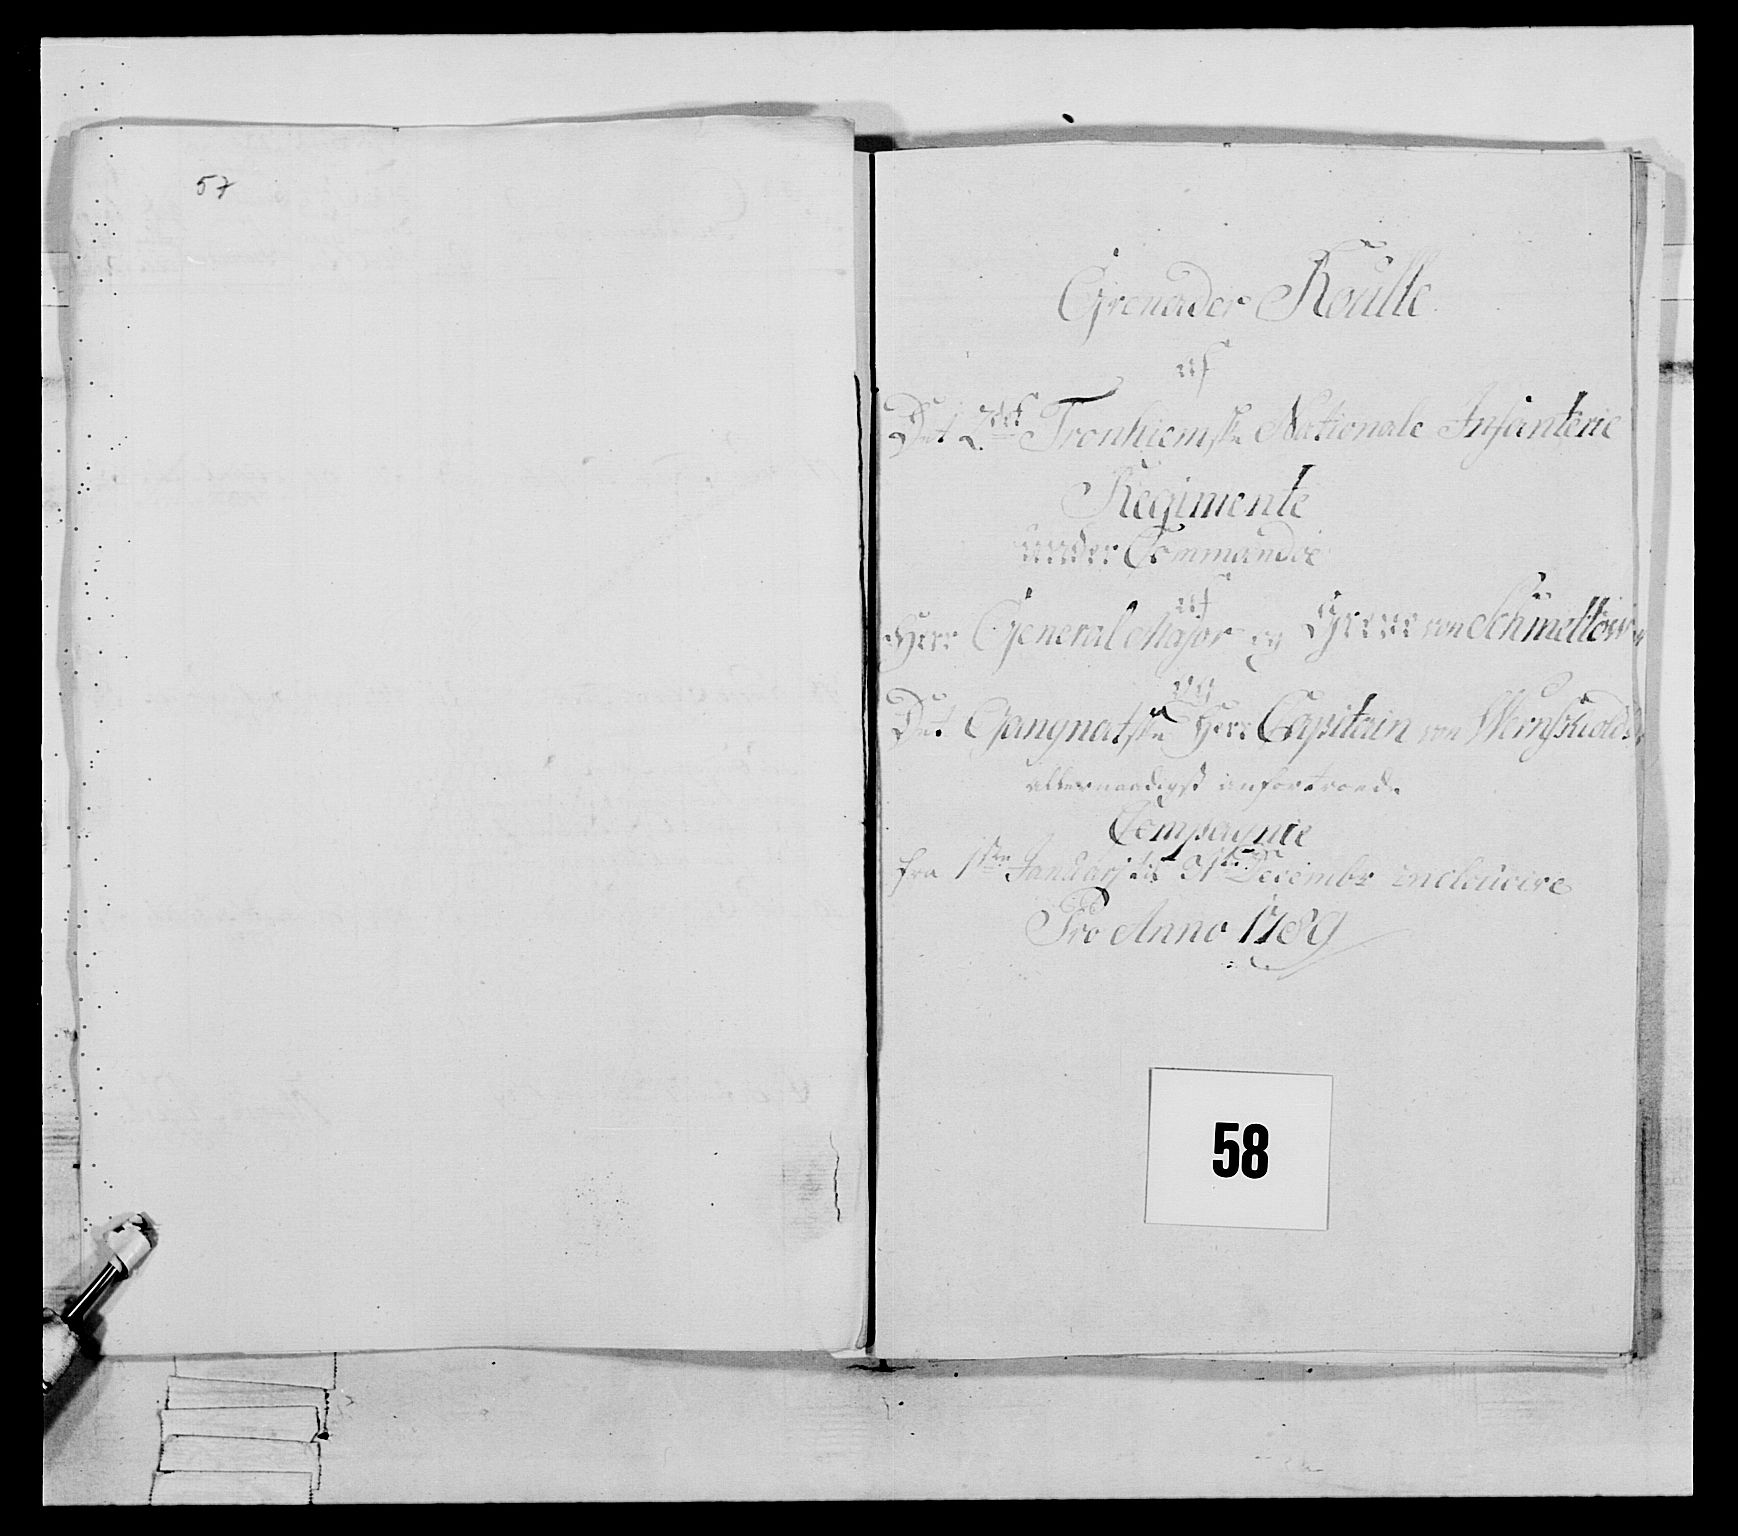 57
Grenader Roulle
af
Det 2det Tronhiemske Nationale Infanterie
Regimente
under Commando
af
Herr General Major og Greve von Schmettow
og
Det Gangnatske Herr Capitain von
allernaadigst anfortroede
Compagnie
fra 1ste Januarj til 31te Decembr incloucive
Pro Anno 1789
58